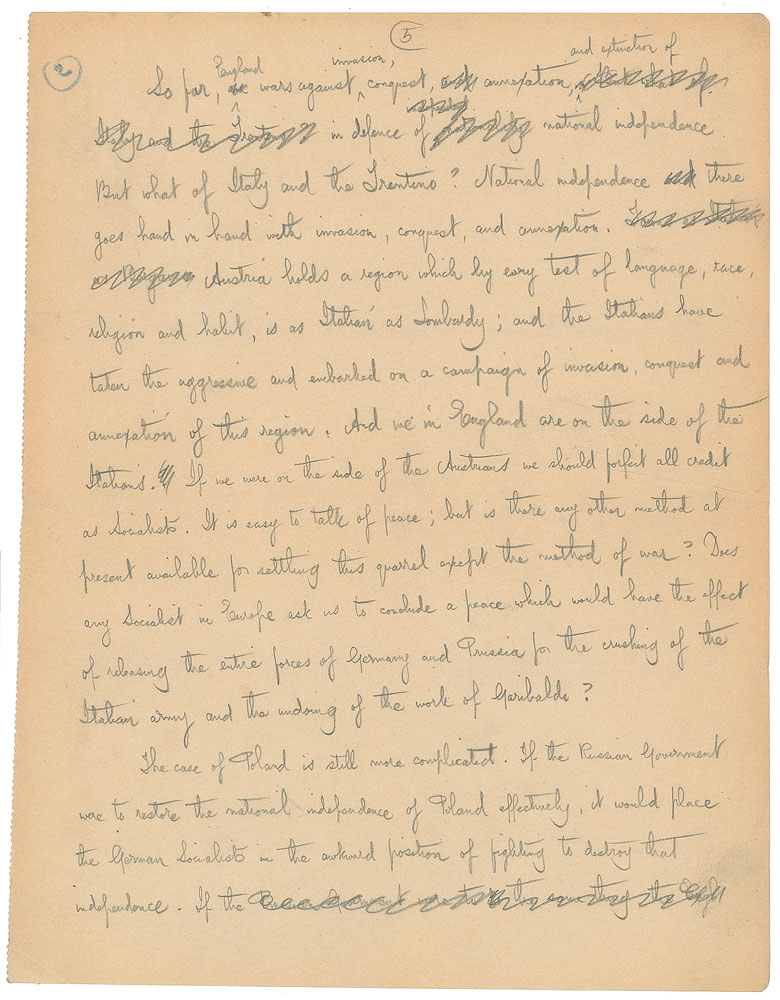 5
2
England invasion, and extinction of
So far, wars against conquest, annexation,
in defence of national independence
But what of Italy and the Trentino? National independence there
goes hand in hand with invasion, conquest, and annexation.
Austria holds a region which by every test of language, race,
religion and habit, is as Italian as Lombardy; and the Italians have
taken the aggressive and embarked on a campaign of invasion, conquest and
annexation of this region. And we in England are on the side of the
Italians. If we were on the side of the Austrians we should forfeit all credit
as Socialists. It is easy to talk of peace; but is there any other method at
present available for settling this quarrel except the method of war? Does
any Socialist in Europe ask us to conclude a peace which would have the effect
of releasing the entire forces of Germany and Prussia for the crushing of the
Italian army and the undoing of the work of Garibaldi?
The case of Poland is still more complicated. If the Russian Government
were to restore the national independence of Poland effectively, it would place
the German Socialists in the awkward position of fighting to destroy that
independence. If the